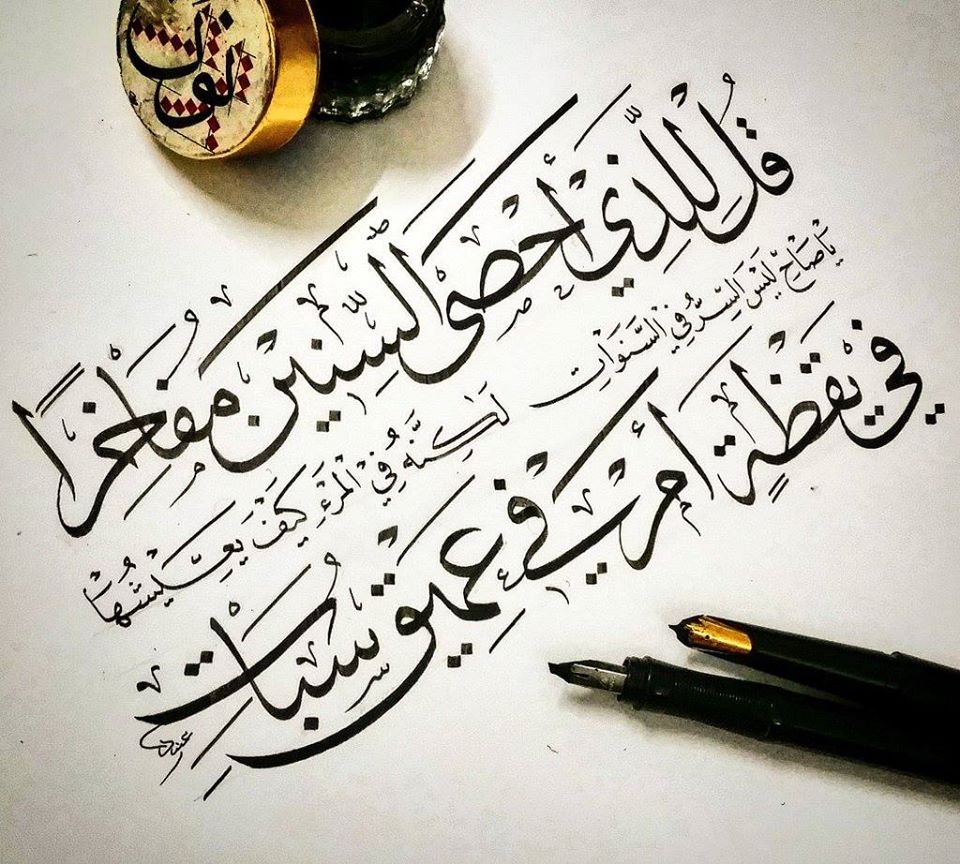 قُلْ لِلَّذِي أَحْصَى السِّنِينَ مُفَاخِرًا
يَا صَاحِ لَيْسَ السِّرُّ فِي السَّنَوَاتِ
لَكِنَّهُ فِي الْمَرْءِ كَيْفَ يَعِيشُهَا
فِي يَقْظَةٍ أَمْ فِي عَمِيقِ سُبَاتِ